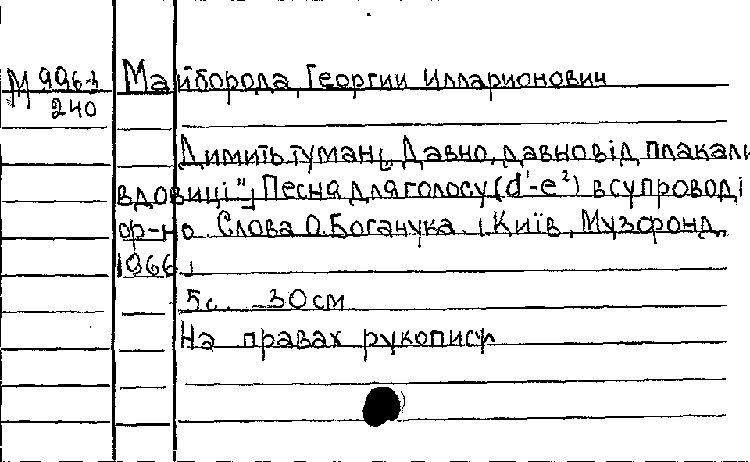 М 9963
240
Майборода, Георгий Илларионович
Димить туман [„Давно, давно від плакали
вдовиці"] Песна для голосу (d¹-e²) в супроводі
ф-но. Слова О. Богачука. [Київ, Музфонд,
1966]
5 с. 30 см
На правах рукопису